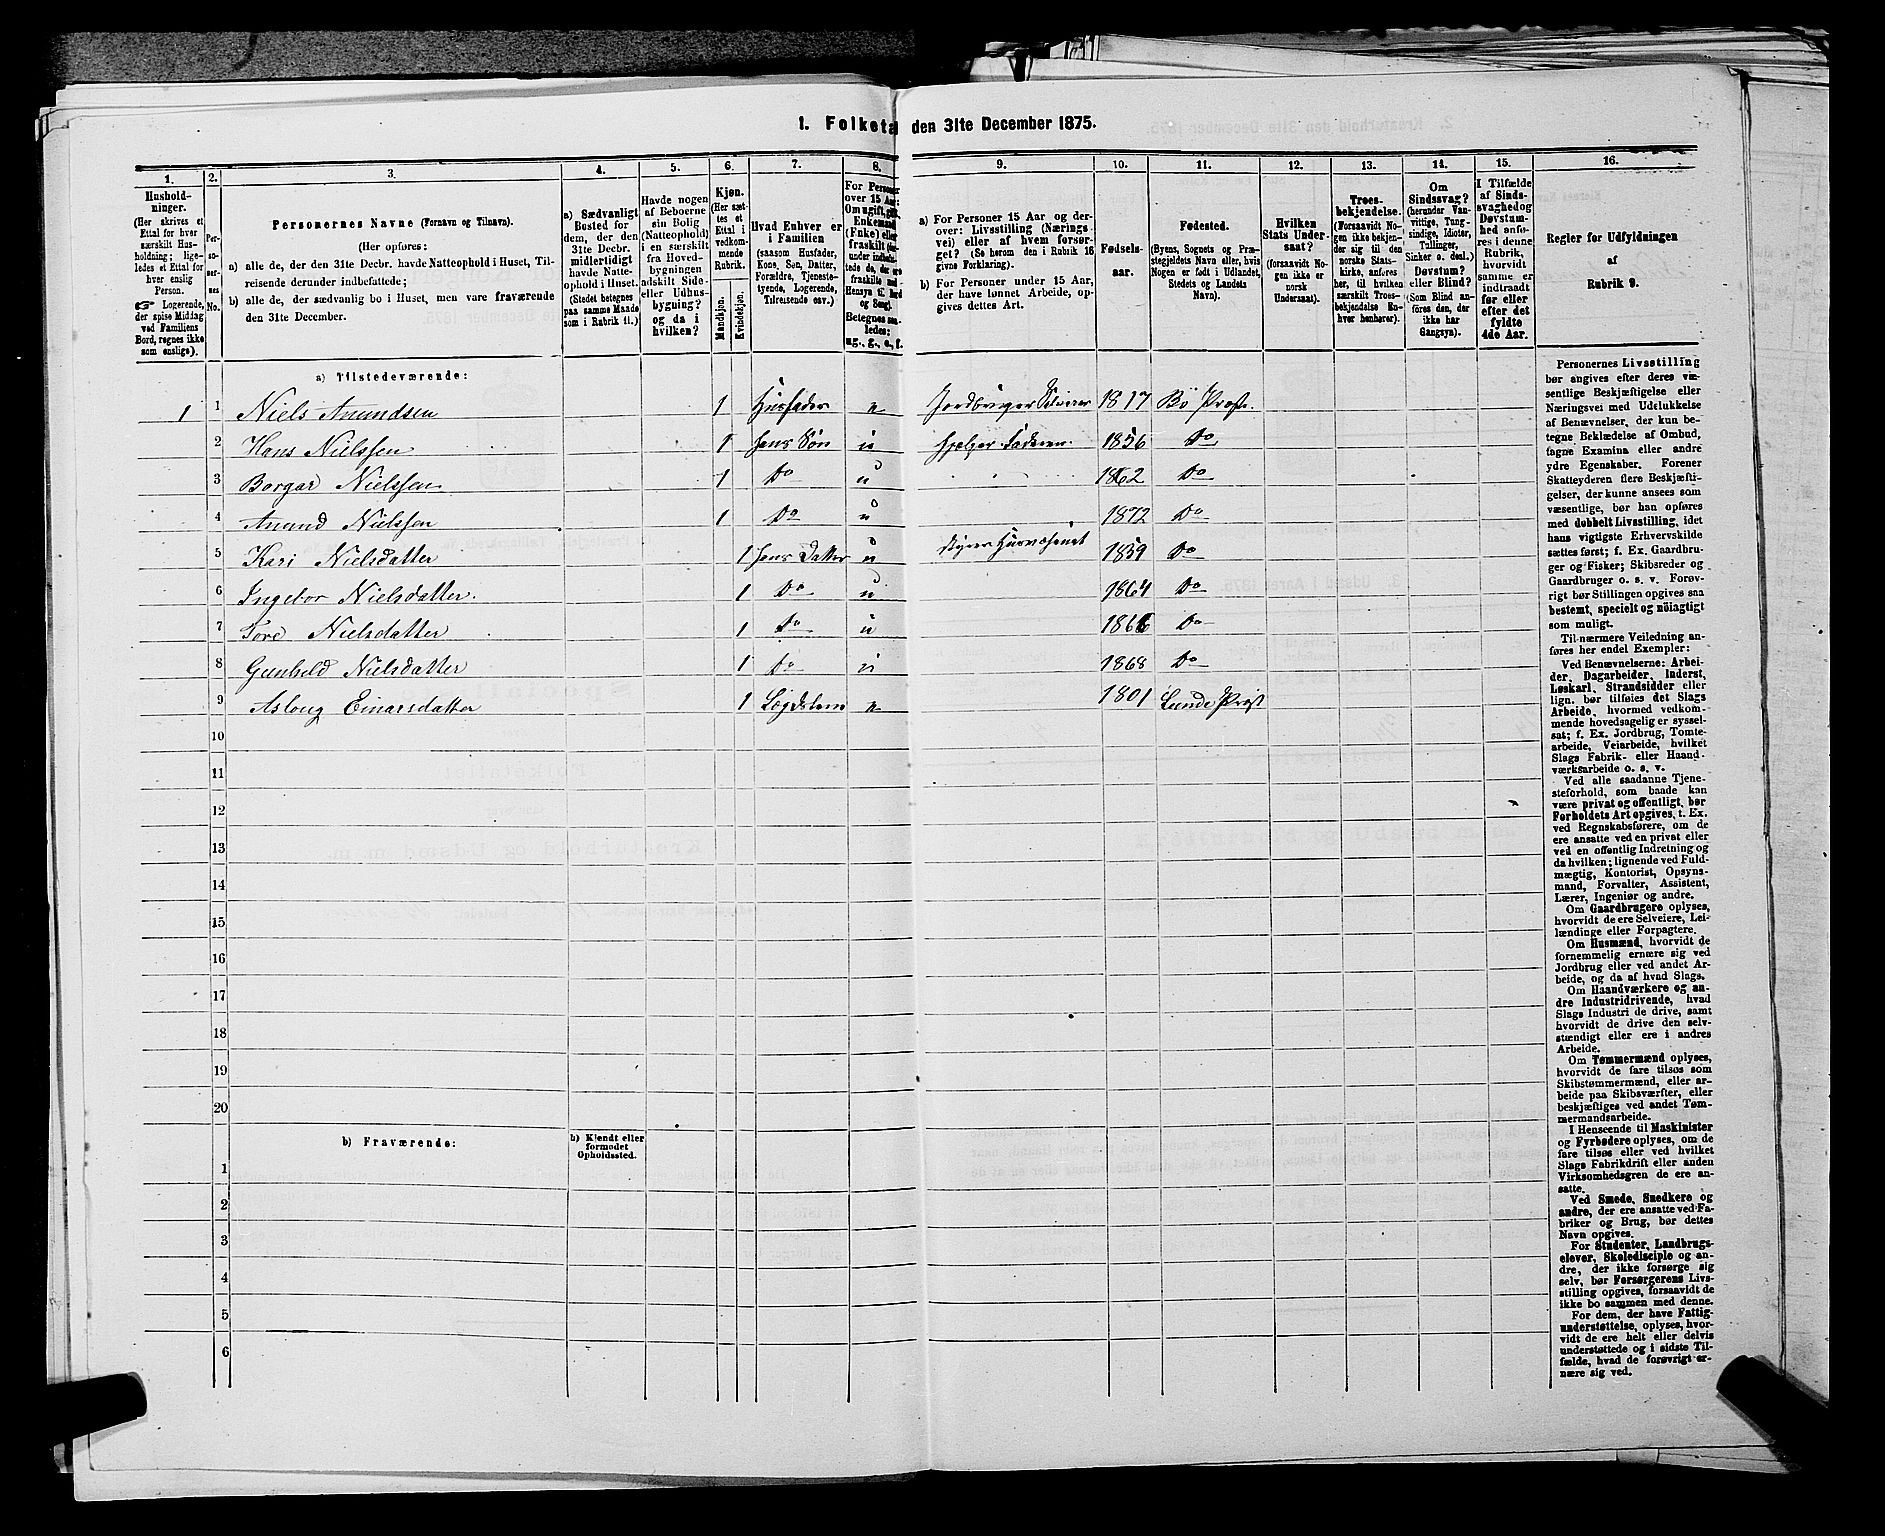 1. Folketa den 31te December 1875.
1. 2. 3. 4. 5. 6. 7. 8. 9. 10. 11. 12. 13. 14. 15. 16.
Hushold-
ninger.
(Her skrives et
Ettal for hver
særskilt Hus-
holdning; lige-
ledes et Ettal for
hver enslig
Person.
☞ Logerende,
der spise Middag
ved Familiens
Bord, regnes ikke
som enslige).
Per-
so-
ner-
nes
No.
Personernes Navne (Fornavn og Tilnavn).
(Her opføres:
a) alle de, der den 31te Decbr. havde Natteophold i Huset, Til-
reisende derunder indbefattede;
b) alle de, der sædvanlig bo i Huset, men vare fraværende
den 31te December.
a) Sædvanligt
Bosted for
dem, der den
31te Decbr.
midlertidigt
havde Natte-
ophold i Huset.
(Stedet betegnes
paa samme Maade
som i Rubrik 11.)
Havde nogen
af Beboerne
sin Bolig
(Natteophold)
i en særskilt
fra Hoved-
bygningen
adskilt Side-
eller Udhus-
bygning?
og da i
hvilken?
Kjøn.
(Her sæt-
tes et
Ettal i
vedkom-
mende
Rubrik.
Mandkjøn.
Kvindekjøn.
Hvad Enhver er
i Familien
(saasom Husfader,
Kone, Søn, Datter,
Forældre, Tjeneste-
tyende, Logerende,
Tilreisende osv.)
For Personer
over 15 Aar:
Om ugift, gift,
Enkemand
(Enke) eller
fraskilt
Betegnes saa-
ledes:
ug., g., e., f.
a) For Personer 15 Aar og der-
over: Livsstilling (Nærings-
vei) eller af hvem forsør-
get? (Se herom den i Rubrik 16
givne Forklaring).
b) For Personer under 15 Aar,
der have lønnet Arbeide, op-
gives dettes Art.
Fødsels-
aar.
Fødested.
(Byens, Sognets og Præ-
stegjeldets Navn eller, hvis
Nogen er født i Udlandet,
Stedets og Landets
Navn).
Hvilken
Stats Under-
saat?
(forsaavidt No-
gen ikke er
norsk
Undersaat).
Troes-
bekjendelse.
(Forsaavidt No-
gen ikke bekjen-
der sig til den
norske Stats-
kirke, anføres
her, til hvilken
særskilt Troes-
bekjendelse En-
hver henhører).
Om
Sindssvag?
(herunder Van-
vittige, Tung-
sindige, Idioter,
Tullinger,
Sinker o. desl.)
Døvstum?
eller Blind?
(Som Blind an-
føres den, der
ikke har
Gangsyn).
I Tilfælde
af Sinds-
svaghed og
Døvstum-
hed anfø-
res i denne
Rubrik,
hvorvidt
samme er
indtraadt
før eller
efter det
fyldte
4de Aar.
Regler for Udfyldningen
af
Rubrik 9.
a) Tilstedeværende:
1 1 Niels Anundsen 1 Husfader e Jordbruger Selveier 1817 Bø Præste.
2 Hans Nielssen 1 hans Søn u hjelper Faderen 1856 Do
3 Borgar Nielssen 1 Do u " 1862 Do
4 Anund Nielssen 1 Do u 1872 Do
5 Kari Nielsdatter 1 hans Datter u styrer Husvæsenet 1859 Do
6 Ingebor Nielsdatter. 1 Do u 1864 Do
7 Tore Nielsdatter 1 Do u 1866 Do
8 Gunhild Nielsdatter 1 Do u 1868 Do
9 Asloug Einarsdatter 1 Lægdslem e 1801 Lunde Præst
10
11
12
13
14
15
16
17
18
19
20
b) Fraværende:
b) Kjendt eller
formodet
Opholdssted.
1
2
3
4
5
6
Personernes Livsstilling
bør angives efter deres væ-
sentlige Beskjæftigelse eller
Næringsvei med Udelukkelse
af Benævnelser, der kun be-
tegne Beklædelse af Ombud,
tagne Examina eller andre
ydre Egenskaber. Forener
Skatteyderen flere Beskjæfti-
gelser, der kunne ansees som
væsentlige, bør han opføres
med dobbelt Livsstilling, idet
hans vigtigste Erhvervskilde
sættes først; f. Ex. Gaardbru-
ger og Fisker; Skibsreder og
Gaardbruger o. s. v. Forøv-
rigt bør Stillingen opgives saa
bestemt, specielt og nöiagtigt
som muligt.
Til nærmere Veiledning an-
føres her endel Exempler:
Ved Benævnelserne: Arbei-
der, Dagarbeider, Inderst,
Løskarl, Strandsidder eller
lign. bør tilføies det Slags
Arbeide, hvormed vedkom-
mende hovedsagelig er syssel-
sat; f. Ex. Jordbrug, Tomte-
arbeide, Veiarbeide, hvilket
Slags Fabrik- eller Haand-
værksarbeide o. s. v.
Ved alle saadanne Tjene-
steforhold, som baade kan
være privat og offentligt, bør
Forholdets Art opgives, t. Ex.
ved Regnskabsførere, om de
ere ansatte ved en privat eller
ved en offentlig Indretning og
da hvilken; lignende ved Fuld-
mægtig, Kontorist, Opsyns-
mand, Forvalter, Assistent,
Lærer, Ingeniør og andre.
Om Gaardbrugere oplyses,
hvorvidt de ere Selveiere, Lei-
lændinge eller Forpagtere.
Om Husmænd, hvorvidt de
fornemmelig ernære sig ved
Jordbrug eller ved andet Ar-
beide, og da af hvad Slags.
Om Haandværkere og an-
dre Industridrivende, hvad
Slags Industri de drive, samt
hvorvidt de drive den selv-
stændigt eller ere i andres
Arbeide.
Om Tømmermænd oplyses,
hvorvidt de fare tilsøs som
Skibstømmermænd, eller ar-
beide paa Skibsværfter, eller
beskjæftiges ved andet Tøm-
mermandsarbeide.
I Henseende til Maskinister
og Fyrbødere oplyses, om de
fare tilsøs eller ved hvilket
Slags Fabrikdrift eller anden
Virksomhedsgren de ere an-
satte.
Ved Smede, Snedkere og
andre, der ere ansatte ved Fa-
briker og Brug, bør dettes
Navn opgives.
For Studenter, Landbrugs-
elever, Skoledisciple og an-
dre, der ikke forsørge sig
selv, bør Forsørgerens Livs-
stilling opgives, forsaavidt de
ikke bo sammen med denne.
For dem, der have Fattig-
understøttelse, oplyses, hvor-
vidt de ere helt eller delvis
understøttede og i sidste Til-
fælde, hvad de forøvrigt er-
nære sig ved.